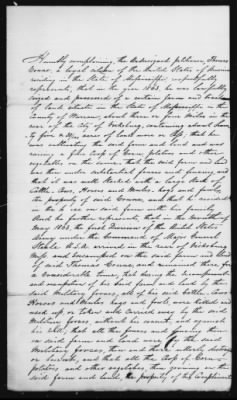 Humbly complaining, the undersigned petitioner, Thomas
Conor, a legal citizen of the United States of America
residing in the State of Mississippi respectfully
represents, that in the year 1863, he was lawfully
seized and possessed of a certain farm and
of land situate in the State of Mississippi in the
County of Warren, about three or four miles in the
rear of the City of Vicksburg containing about
to five acres of land more or less, that he
was cultivating the said farm and land and was
raising a fine crop of Corn, potatoes and other
vegetables on the same, that the said farm and land
was then under substantial fences and fencing, and
that it was well stocked with a large stock of
Cattle, Cows, Horses and Mules, hogs and fowls,
the property of said Conor, and that he resided
on said farm with his family
And he further represents, that in the month of
May 1863, the first Division of the United States
Army under the Command of Major General
Steele U.S.A. arrived in the rear of Vicksburg
Miss. and encamped on the said farm and land
of said Thomas Conor, and remained there for
a Considerable time; that during the encampment
and occupation of his said farm and land by the
said Military forces, all of his said Cattle, Cows
Horses and Mules hogs and fowls, were killed and
used up, or taken and carried away by the said
Military forces, without his consent,
that all the fences and fencing then
on said farm and land were by the said
Military forces, then and there totally destroyed
or burned, and that all the Crop of Corn
potatoes, and other vegetables, then growing on the
said farm and land, the property of his complainant